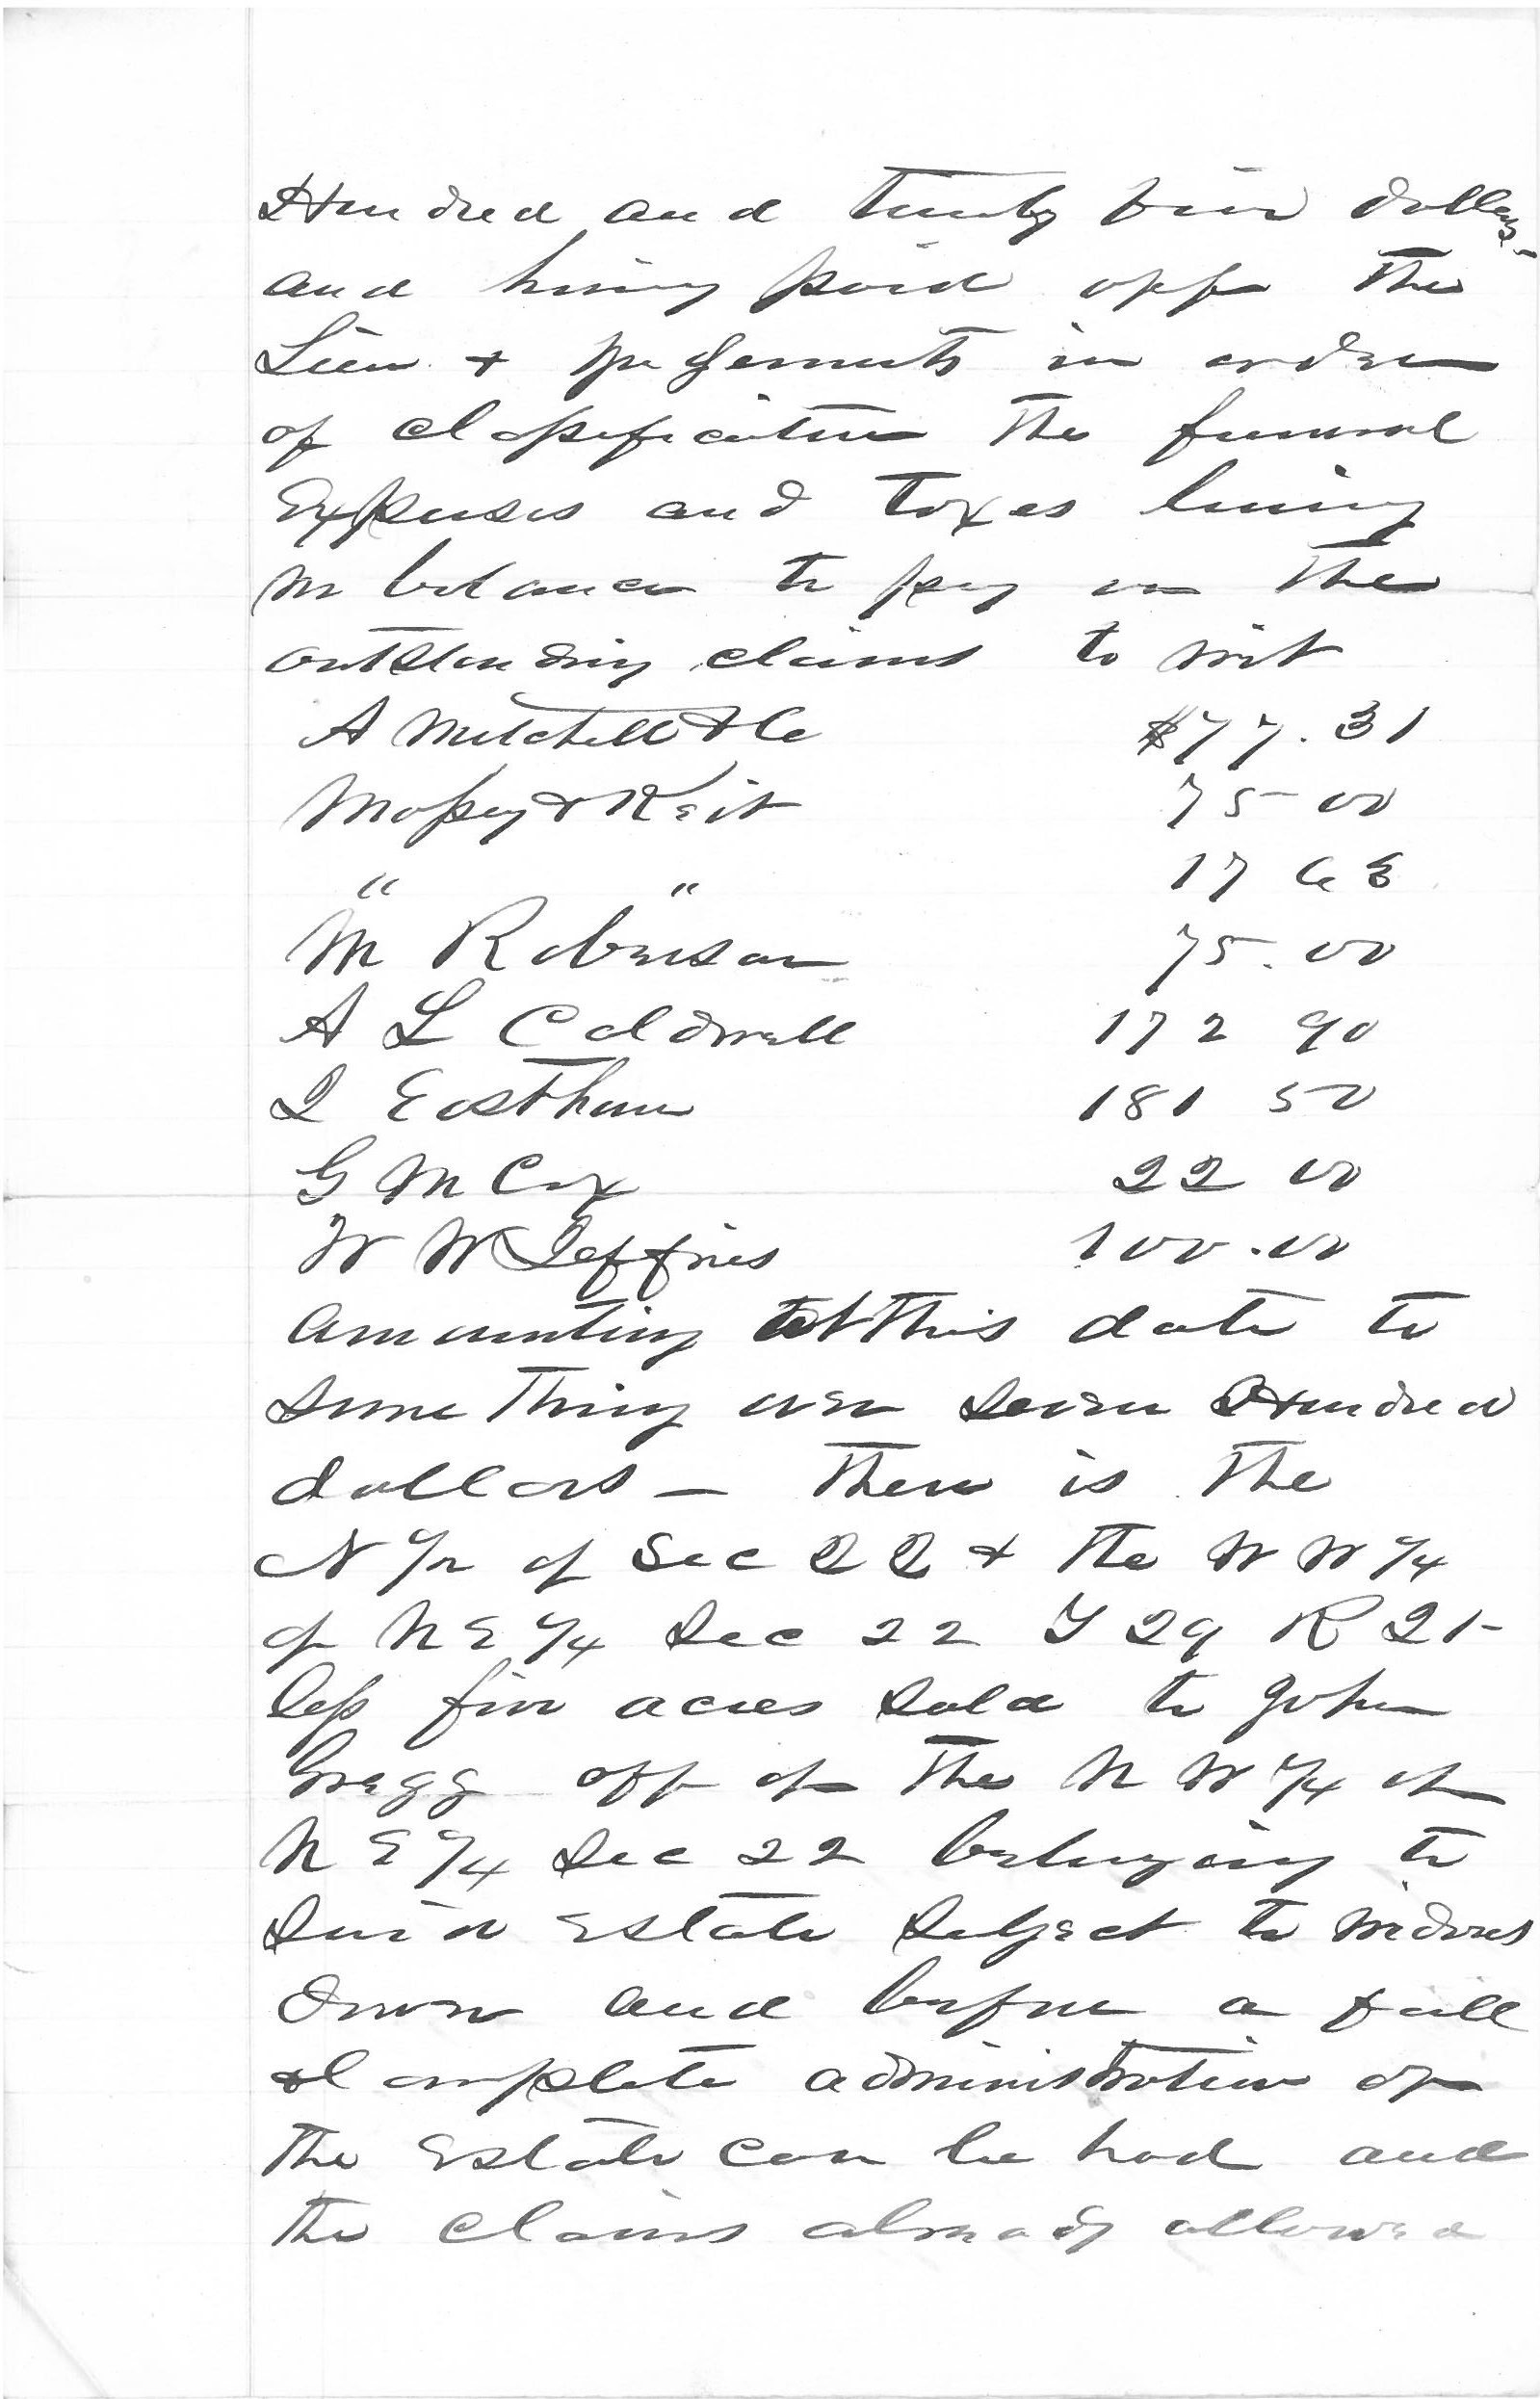 Hundred and twenty five dollars-
and having paid off the
Lien & Judgements in order
of classification the funeral
Expenses and taxes leaving
no balance to pay on the
outstanding claims to wit
A Mitchell & Co $77.31
Massey & Keit 75 00
" " 17 68
M Roberson 75.00
A L Caldwell 172 90
I Eastham 181 50
G M Cox 22 00
W W Jeffries 100.00
amounting at this date to
something over seven Hundred
dollars – there is the
N 1/2 of Sec 22 & the N W 1/4
of N E 1/4 Sec 22 T 29 R 21-
less five acres sold to John
Gregg off of the N W 1/4 of
N E 1/4 Sec 22 belonging to
said Estate subject to widows
Dower and before a full
& Complete administration of
the Estate can be had and
the claims already allowed